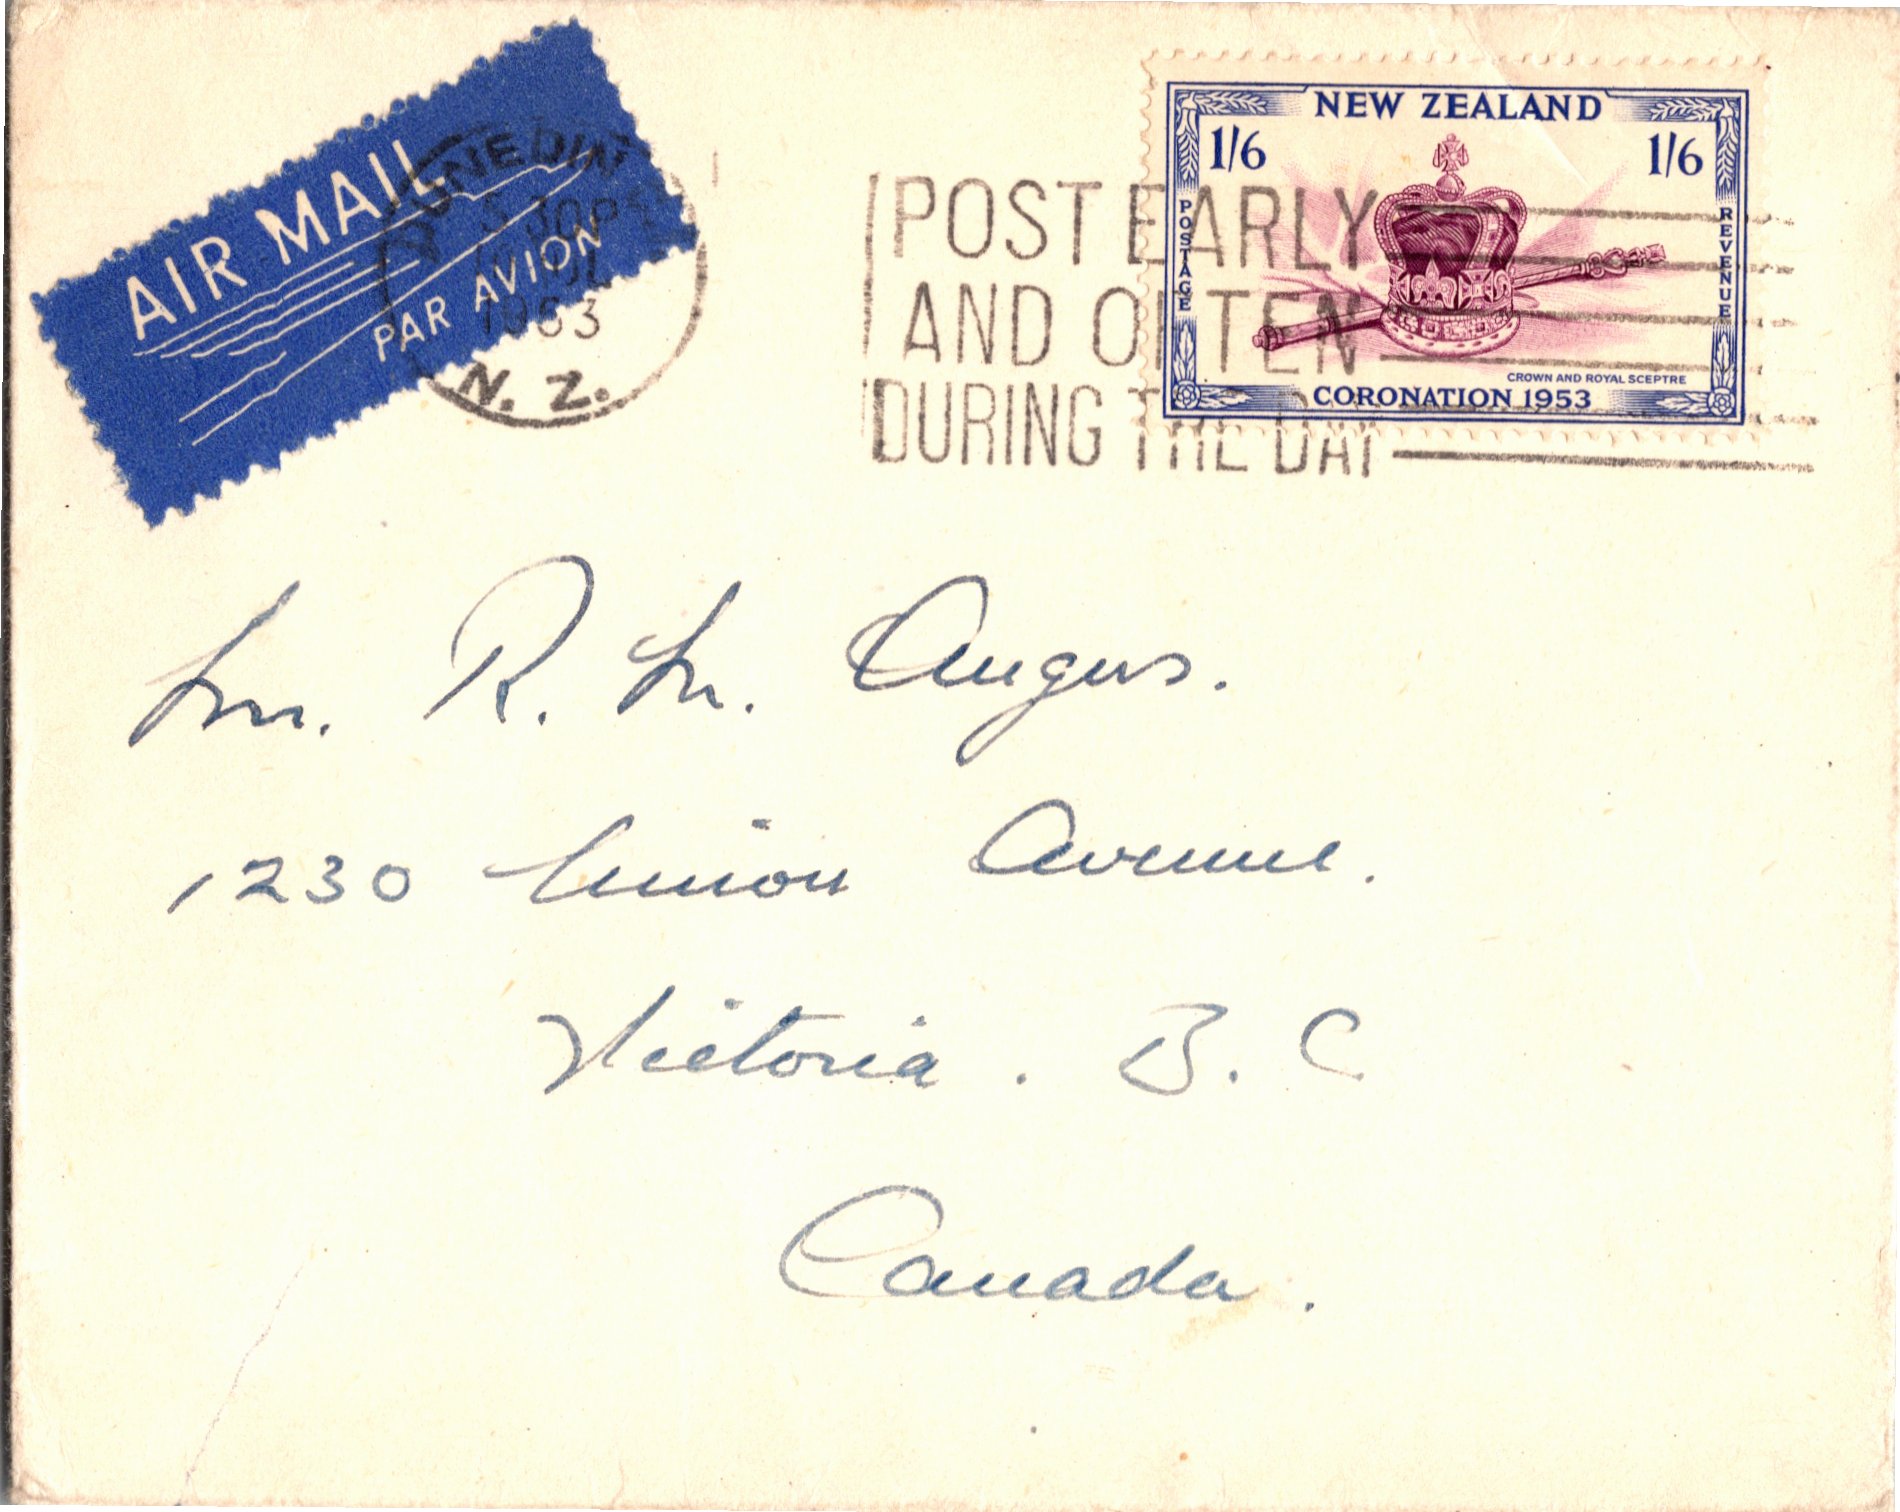 AIR MAIL
PAR AVION
DUNEDIN
5 30 P
JL
1953
N. Z.
POST EARLY
AND OFTEN
DURING THE DAY
NEW ZEALAND
1/6 1/6
POSTAGE
REVENUE
CROWN AND ROYAL SCEPTRE
CORONATION 1953
Mr. R. M. Angus.
1230 Union Avenue.
Victoria. B. C
Canada.